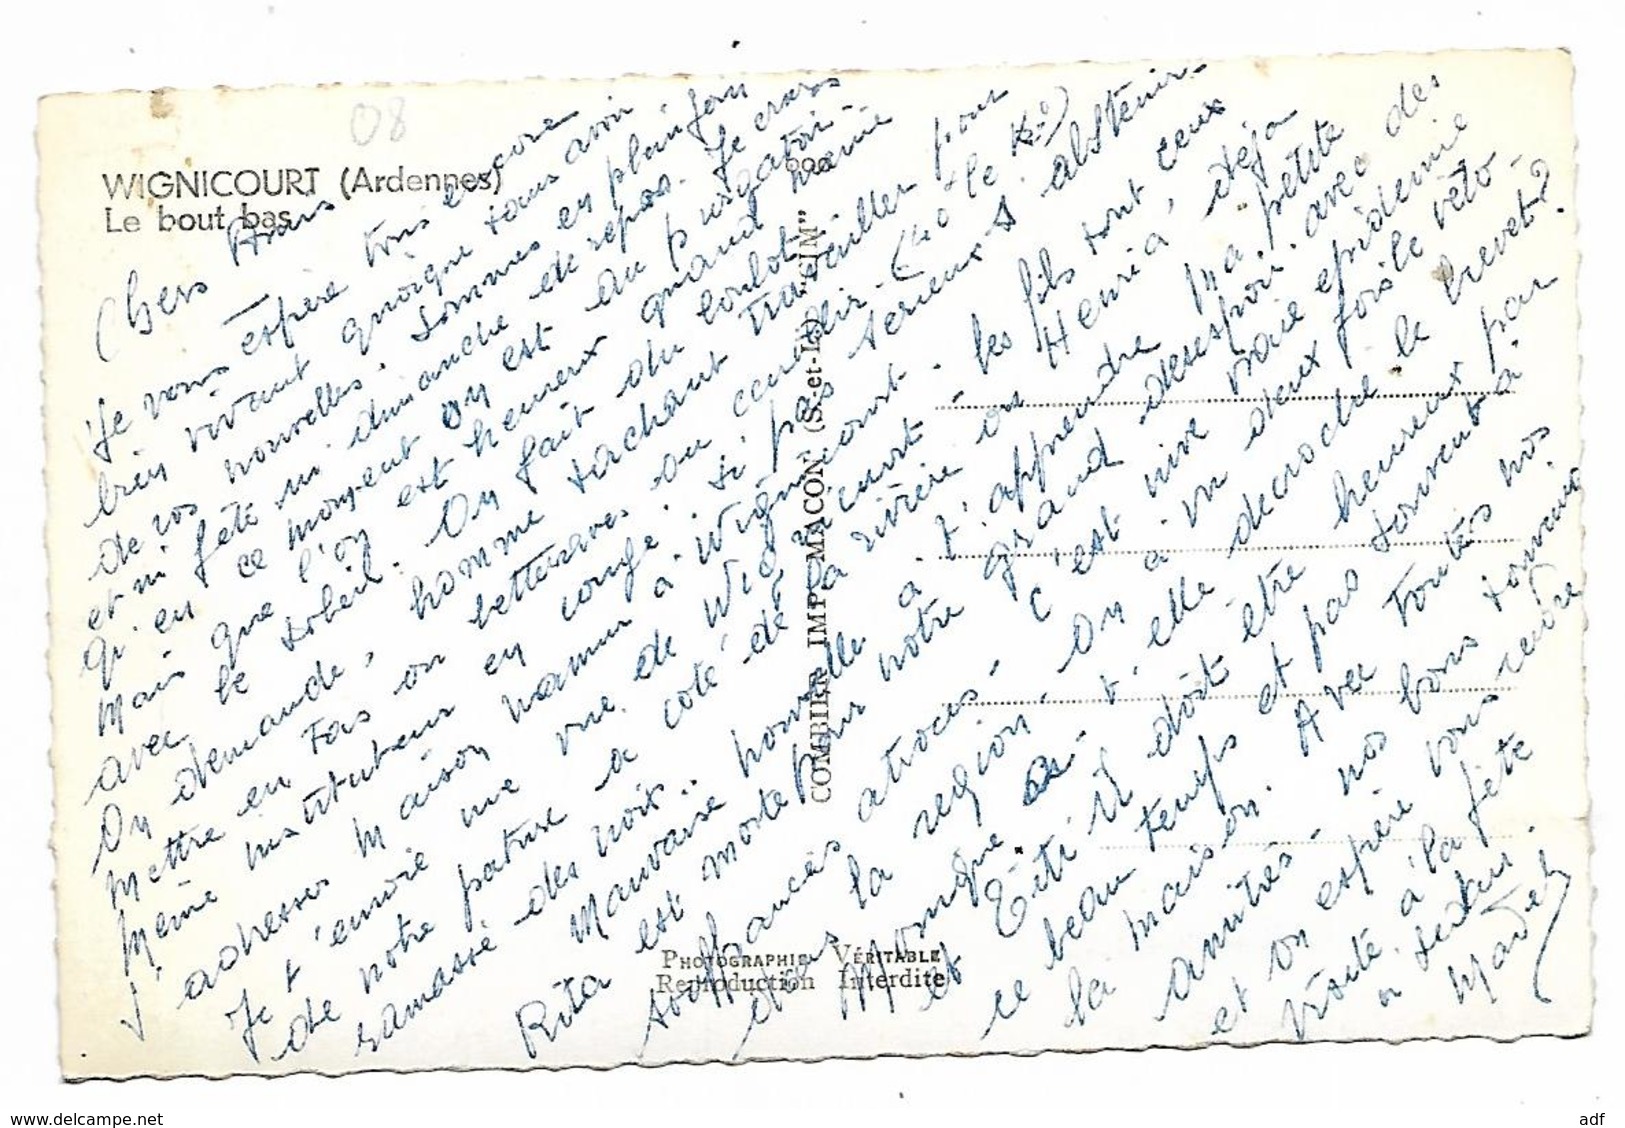 08
WIGNICOURT (Ardennes)
Le bout bas
Chers Amis
Je vous espère tous encore
bien vivant quoique sans avoir
de vos nouvelles. Sommes en plein foin
et ni fête ni dimanche de repos. Je crois
qu'en ce moment on est au purgatoire
mais que l'on est heureux quand même
avec le soleil. On fait du boulot.
On demande, homme sachant travailler pour
mettre en tas ou betteraves ou cueillir
même instituteur en congé. si pas sérieux s'abstenir
J'adresses maison namur à Wignicourt.
Je t'envoie une vue de Wignicourt. les fils sont ceux
de notre pature a coté de la rivière ou Henri a, déjà
ramassé des noix..
Mauvaise nouvelle a t'apprendre. Ma petite
Rita est morte pour notre grand desespoir. avec des
souffrances atroces. C'est une vraie epidemie
dans la region. On a vu deux fois le véto.
Monique a t'elle decroché le brevet?
et Titi il doit être heureux par
ce beau temps et pas souvent à
la maison. Avec toutes nos
amitiés. nos bons souvenirs
et on espère vous rendre
visite à la fête
a sedan.
Madel
COMBIER IMP. MACON (S.-et-L.) "CIM"
PHOTOGRAPHIE VÉRITABLE
Reproduction Interdite
www.delcampe.net
adf